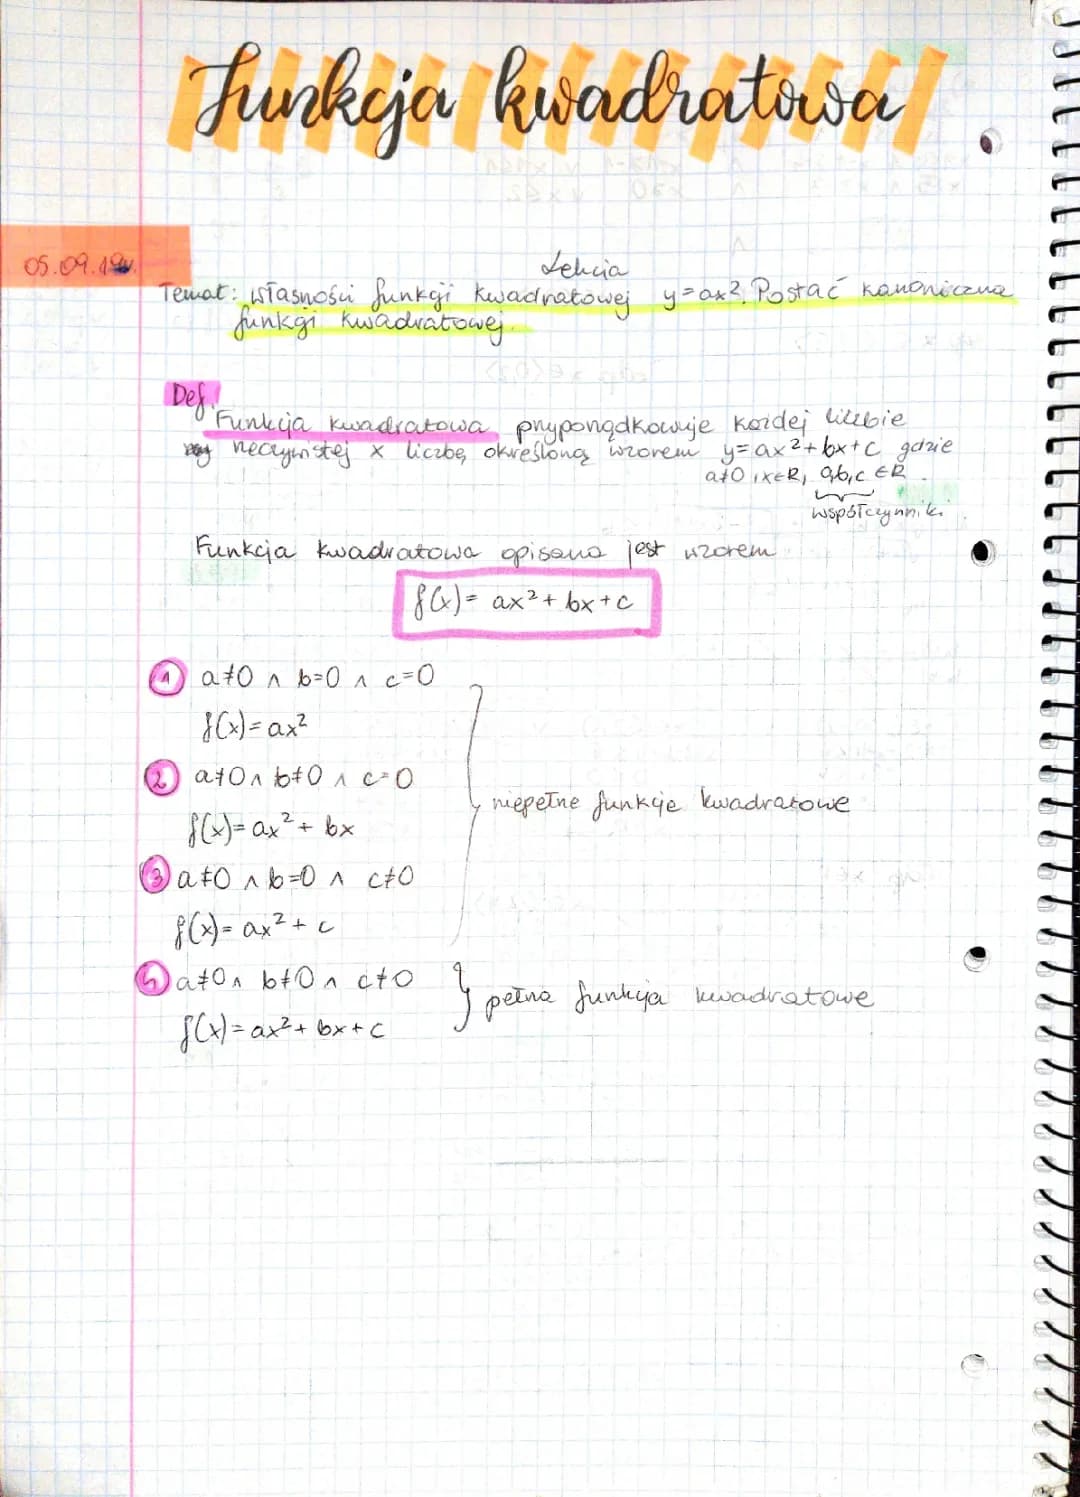 Funkcja kwadratowa
05.09.19r.
Lekcja
Temat: Własności funkcji kwadratowej y=ax². Postać kanoniczna
funkcji kwadratowej.
Def.
Funkcja kwadratowa przyporządkowuje każdej liczbie
rzeczywistej x liczbę określoną wzorem y=ax²+bx+c gdzie
a≠0, x∈R, a,b,c ∈R
współczynniki.
Funkcja kwadratowa opisana jest wzorem
f(x)= ax²+bx+c
1 a≠0 ∧ b=0 ∧ c=0
f(x)=ax²
2 a≠0 ∧ b≠0 ∧ c=0
f(x)=ax²+bx
niepełne funkcje kwadratowe
3 a≠0 ∧ b=0 ∧ c≠0
f(x)=ax²+c
4 a≠0 ∧ b≠0 ∧ c≠0
pełna funkcja kwadratowe
f(x)=ax²+bx+c